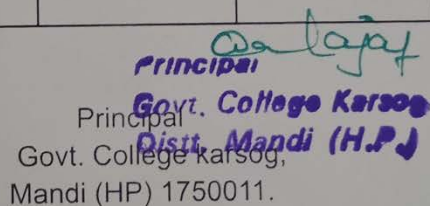 Principal
Govt. College Karsog
Distt. Mandi (H.P.)
Principal
Govt. College karsog,
Mandi (HP) 1750011.